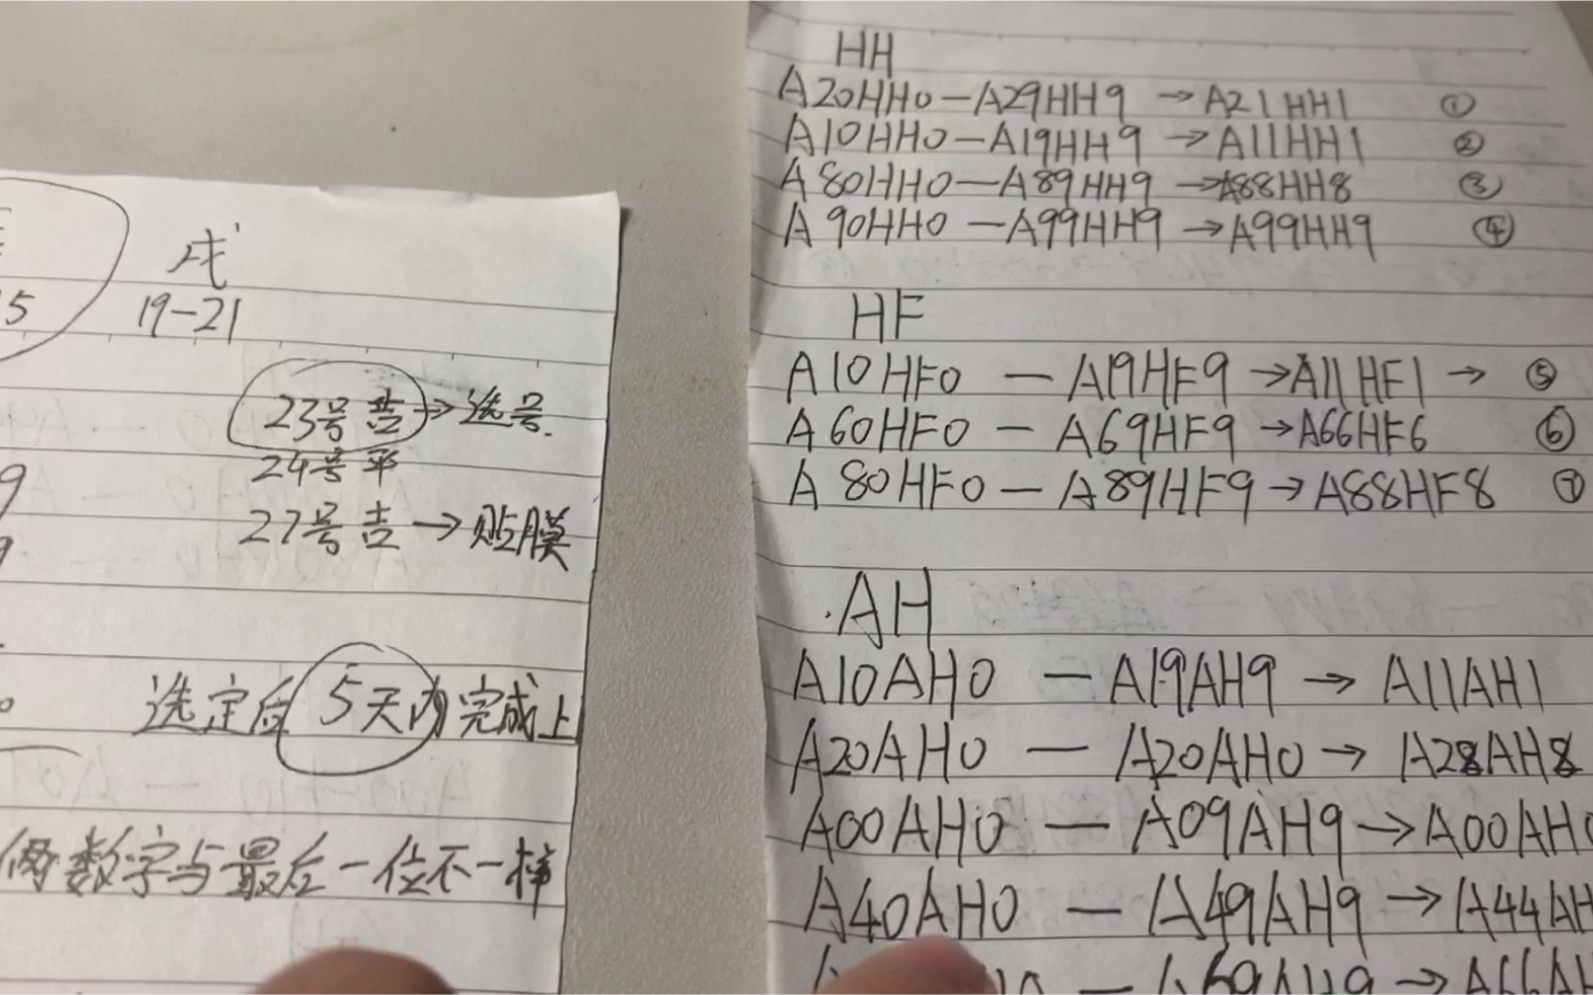 戌
19-21
23号吉→选号.
24号平
27号吉→贴膜
选定后5天内完成上
俩数字与最后一位不一样
HH
A20HH0-A29HH9→A21HH1 ①
A10HH0-A19HH9→A11HH1 ②
A80HH0-A89HH9→A88HH8 ③
A90HH0-A99HH9→A99HH9 ④
HF
A10HF0-A19HF9→A11HF1→ ⑤
A60HF0-A69HF9→A66HF6 ⑥
A80HF0-A89HF9→A88HF8 ⑦
AH
A10AH0-A19AH9→A11AH1
A20AH0-A20AH0→A28AH8
A00AH0-A09AH9→A00AH0
A40AH0-A49AH9→A44AH
-A69AH9→A66AH